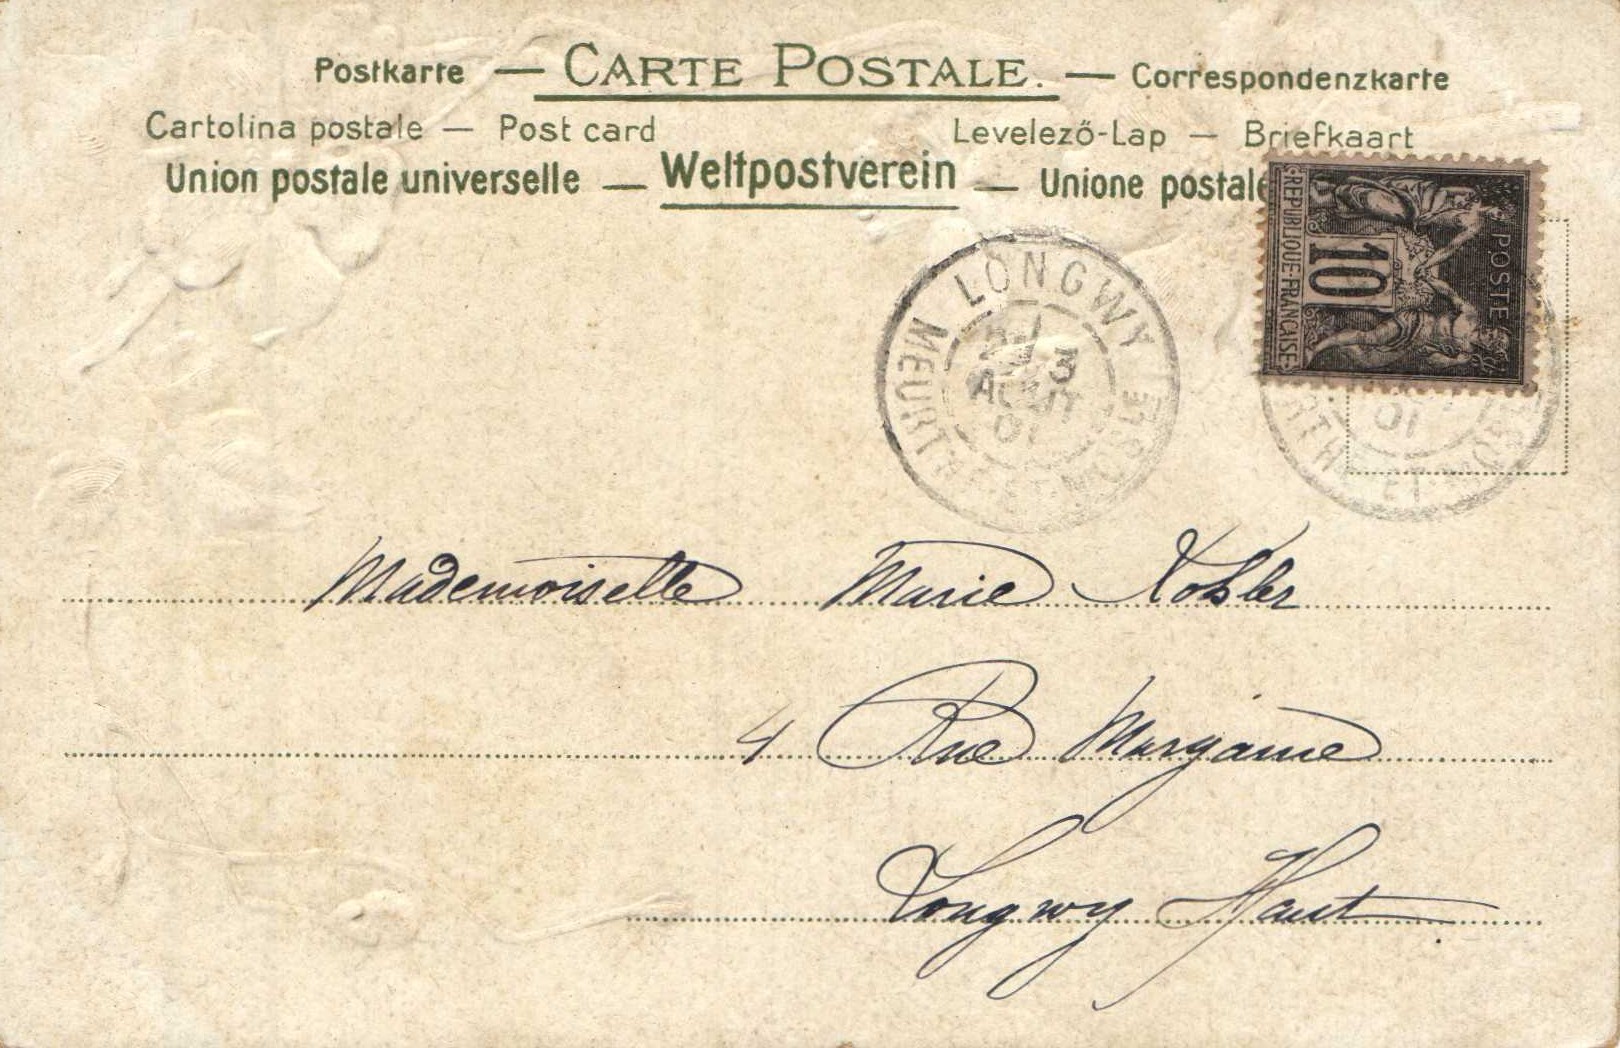 Postkarte — CARTE POSTALE. — Correspondenzkarte
Cartolina postale — Post card Levelező-Lap — Briefkaart
Union postale universelle — Weltpostverein — Unione postale
REPUBLIQUE FRANÇAISE
10
POSTE
LONGWY
MEURTHE-ET-MOSELLE
3
AOUT
01
01
Mademoiselle Marie Kohler
4 Rue
Longwy Haut